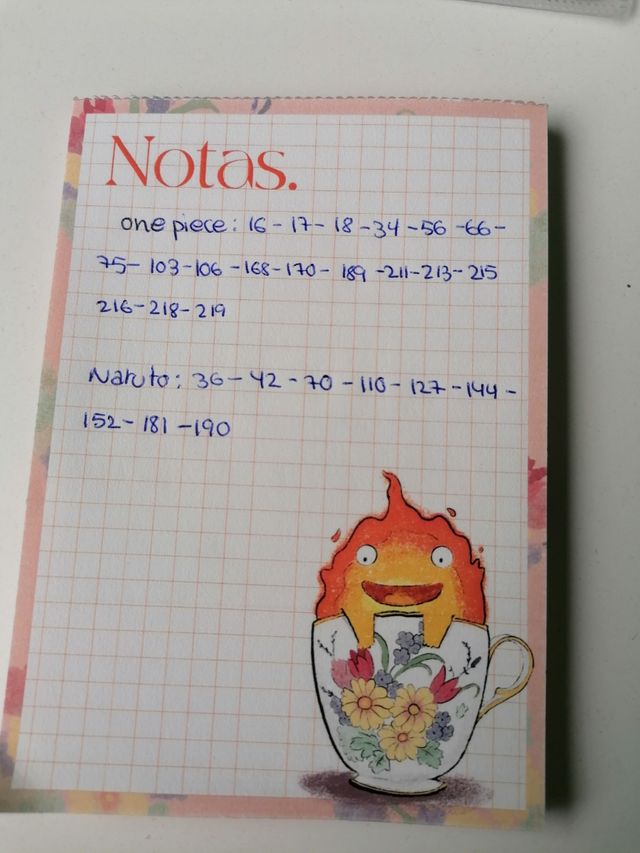 Notas.
one piece: 16 - 17 - 18 - 34 - 56 - 66 -
75 - 103 - 106 - 168 - 170 - 189 - 211 - 213 - 215
216 - 218 - 219
Naruto: 36 - 42 - 70 - 110 - 127 - 144 -
152 - 181 - 190